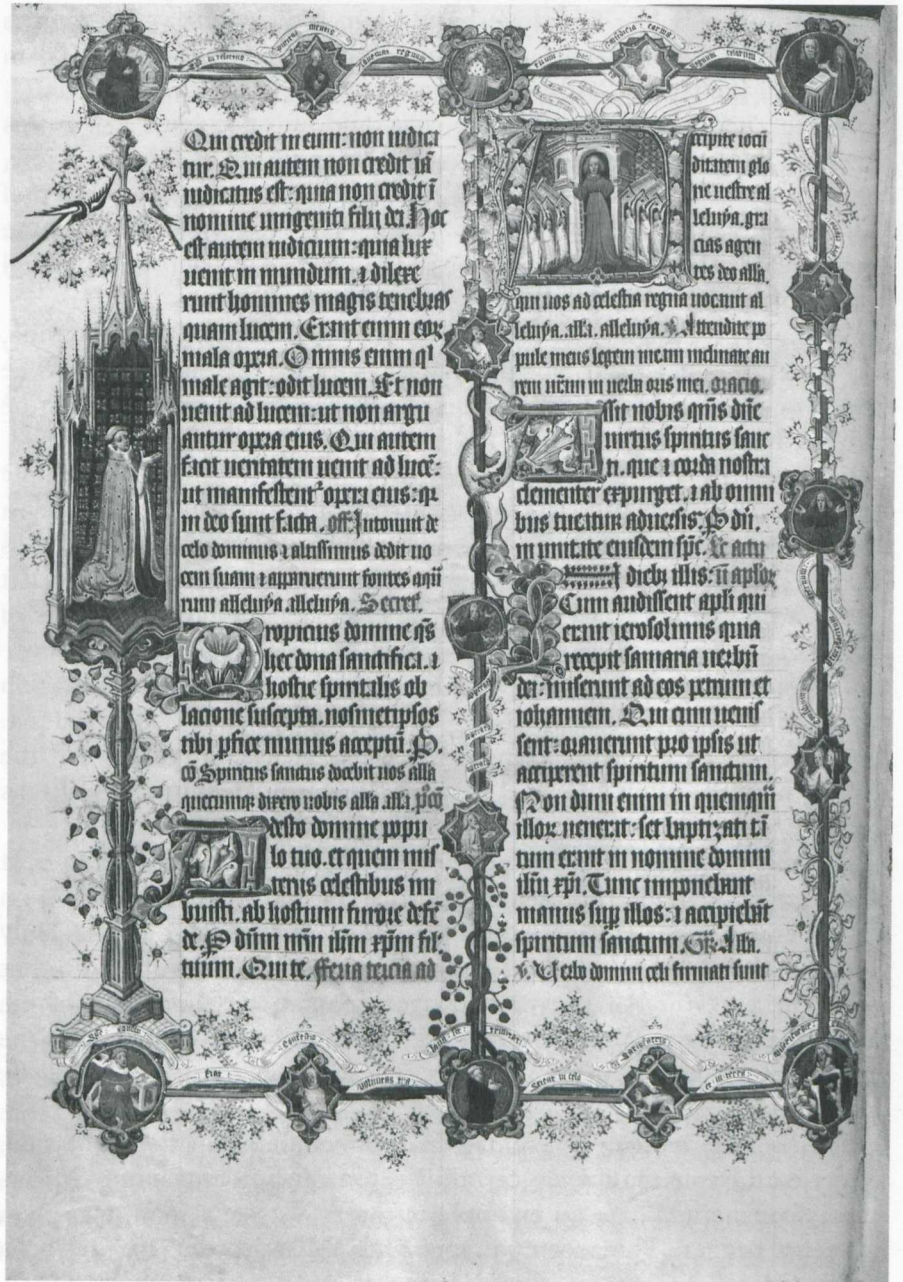 Qui credit in eum: non iudica
tur. Qui autem non credit iā
iudicatus est: quia non credit ī
nomine unigeniti filii dei. Hoc
est autem iudicium: quia lux
uenit in mundum. ⁊ dilexe
runt homines magis tenebras
quam lucem. Erant enim eor
mala opera. Omnis enim qͥ
male agit: odit lucem. Et non
uenit ad lucem: ut non argu
antur opera eius. Qui autem
facit ueritatem uenit ad lucē:
ut manifestentᷣ opera eius: qꝛ
in deo sunt facta. off. Intonuit de
celo dominus ⁊ altissimus dedit uo
cem suam ⁊ apparuerunt fontes aqu̅
rum alleluya. alleluya. Secret.
Propicius domine qs̄
hec dona sanctifica. ⁊
hostie spiritalis ob
lacione suscepta. nosmetipsos
tibi ꝑfice munus acceptū. P.
cō Spiritus sanctus docebit uos alla
quecumqꝫ dixero uobis alla. alla. p̄cō
Adesto domine popu
lo tuo. et quem mis
teriis celestibus im
buisti. ab hostium furore defē
de. P dūm nr̄m ih̄m xp̄m fil
tuum. Qui te. fferia tercia ad
Accipite iocū
ditatem glo
rie uestre al
leluya. gra
cias agen
tes deo alla.
qui uos ad celestia regna uocauit al
leluya. alla. alleluya. ℣. Attendite po
pule meus legem meam inclinate au
rem ur̄am in uerba oris mei. oracio.
Assit nobis qs̄ dn̄e
uirtus spiritus sanc
ti. que ⁊ corda nostra
clementer expurget. ⁊ ab omni
bus tueatur aduersis. P dn̄.
in unitate eiusdem spc̄. Lc̄ actu
I diebꝫ illis: ū aplor
Cum audissent apli qui
erant ierosolimis quia
recepit samaria uerbū
dei: miserunt ad eos petrum et
iohannem. Qui cum uenis
sent: orauerunt pro ipsis ut
acciperent spiritum sanctum.
Non dum enim in quemqū
illor uenerat: set baptizati tā
tum erant in nomine domini
ih̄u xp̄i. Tunc imponebant
manus suꝑ illos: ⁊ accipiebāt
spiritum sanctum. Gr̄. Alla.
℣. Uerbo domini celi firmati sunt
Erat
uoluntas tua
Sicut in celo
et in terra